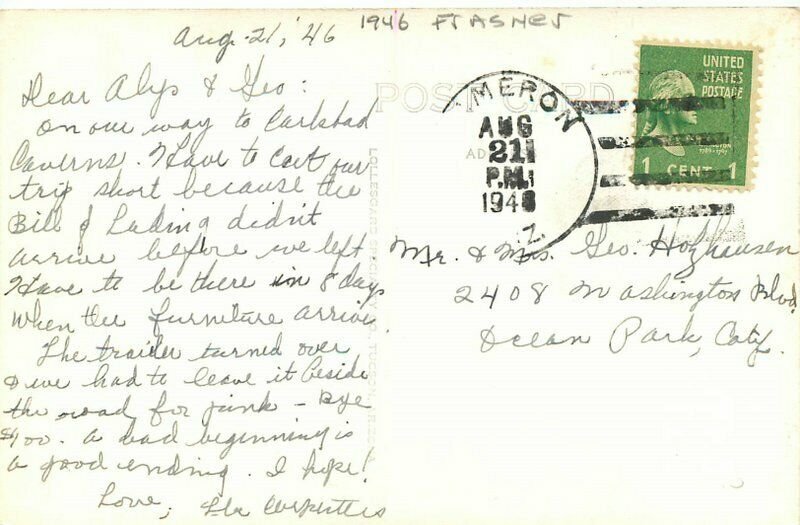 1946 FRASHER
Aug. 21, '46
Dear Alys & Geo:
On our way to Carlsbad
Caverns. Have to cut our
trip short because the
Bill of Lading didn't
arrive before we left
Have to be there in 8 days
when the furniture arrives
The trailer turned over
& we had to leave it beside
the road for junk - Bye
$400. A bad beginning is
a good ending. I hope!
Love,
POST CARD
AD
LOLLESGARD SPECIALTY CO., TUCSON, ARIZ.
MERON
AUG
21
P.M.
1946
Z.
UNITED
STATES
POSTAGE
1 CENT 1
Mr. & Mrs. Geo. Holzhausen
2408 Washington Blvd.
Ocean Park, Calif.